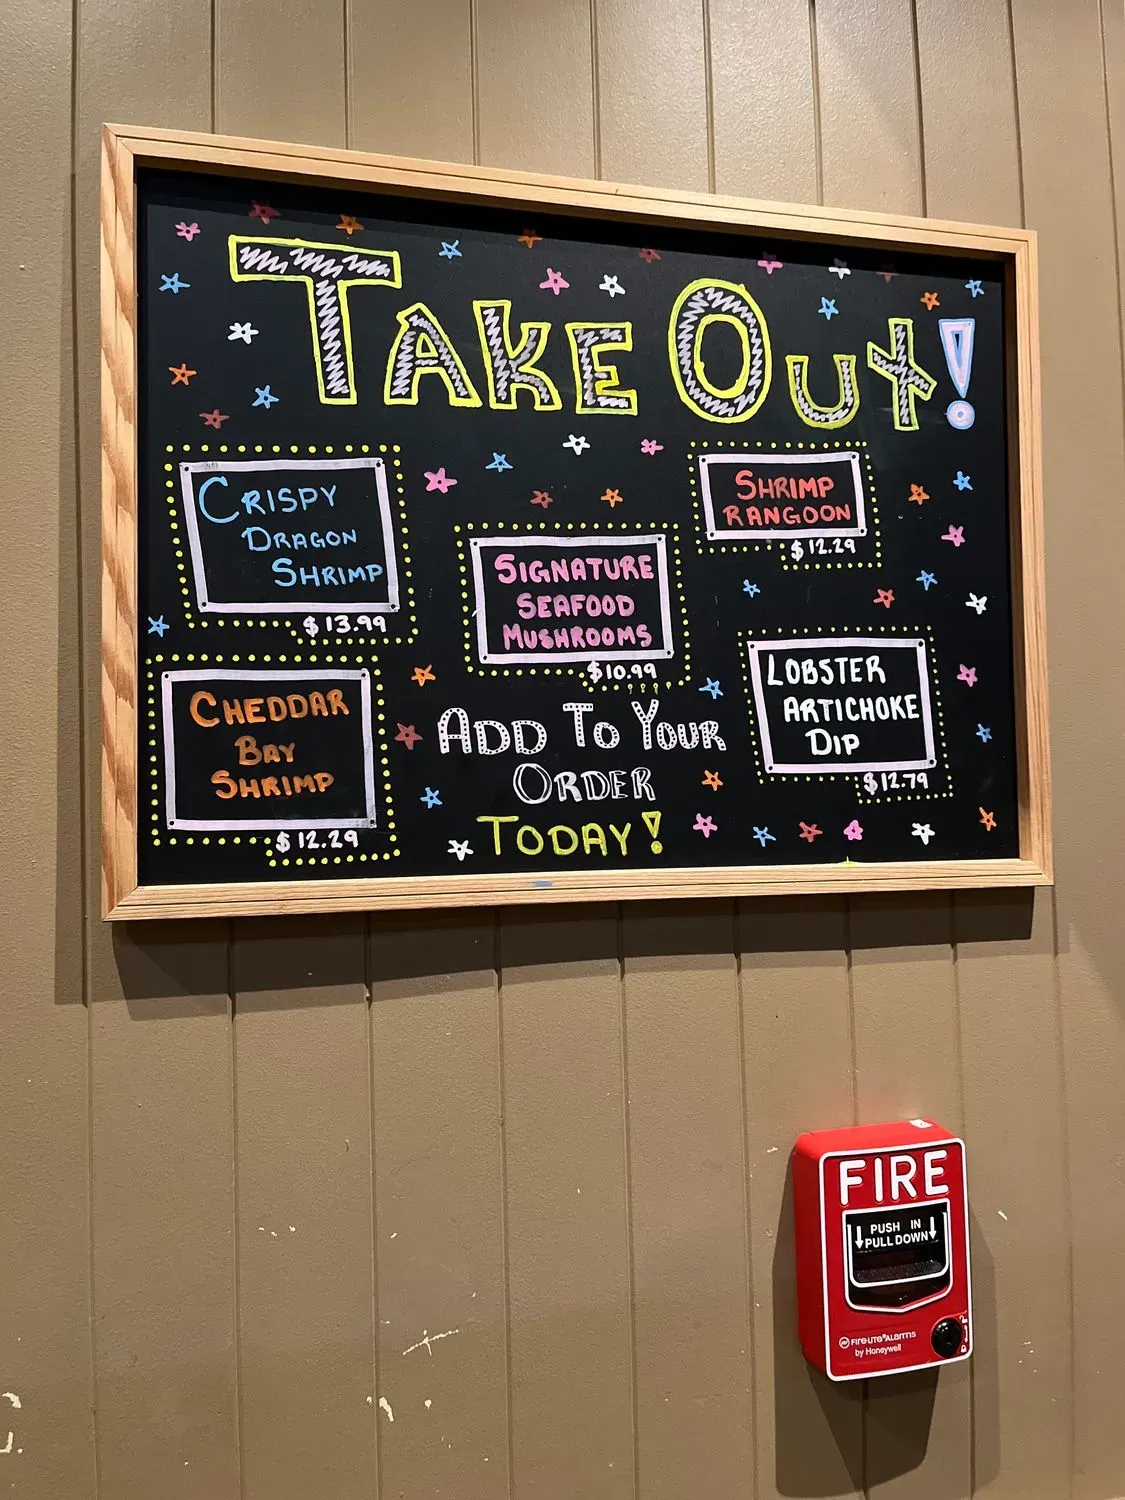 TAKE OUT!
CRISPY
DRAGON
SHRIMP
$13.99
SIGNATURE
SEAFOOD
MUSHROOMS
$10.99
SHRIMP
RANGOON
$12.29
CHEDDAR
BAY
SHRIMP
$12.29
LOBSTER
ARTICHOKE
DIP
$12.79
ADD TO YOUR
ORDER
TODAY!
FIRE
PUSH IN
PULL DOWN
FIRE-LITE® ALARMS
by Honeywell